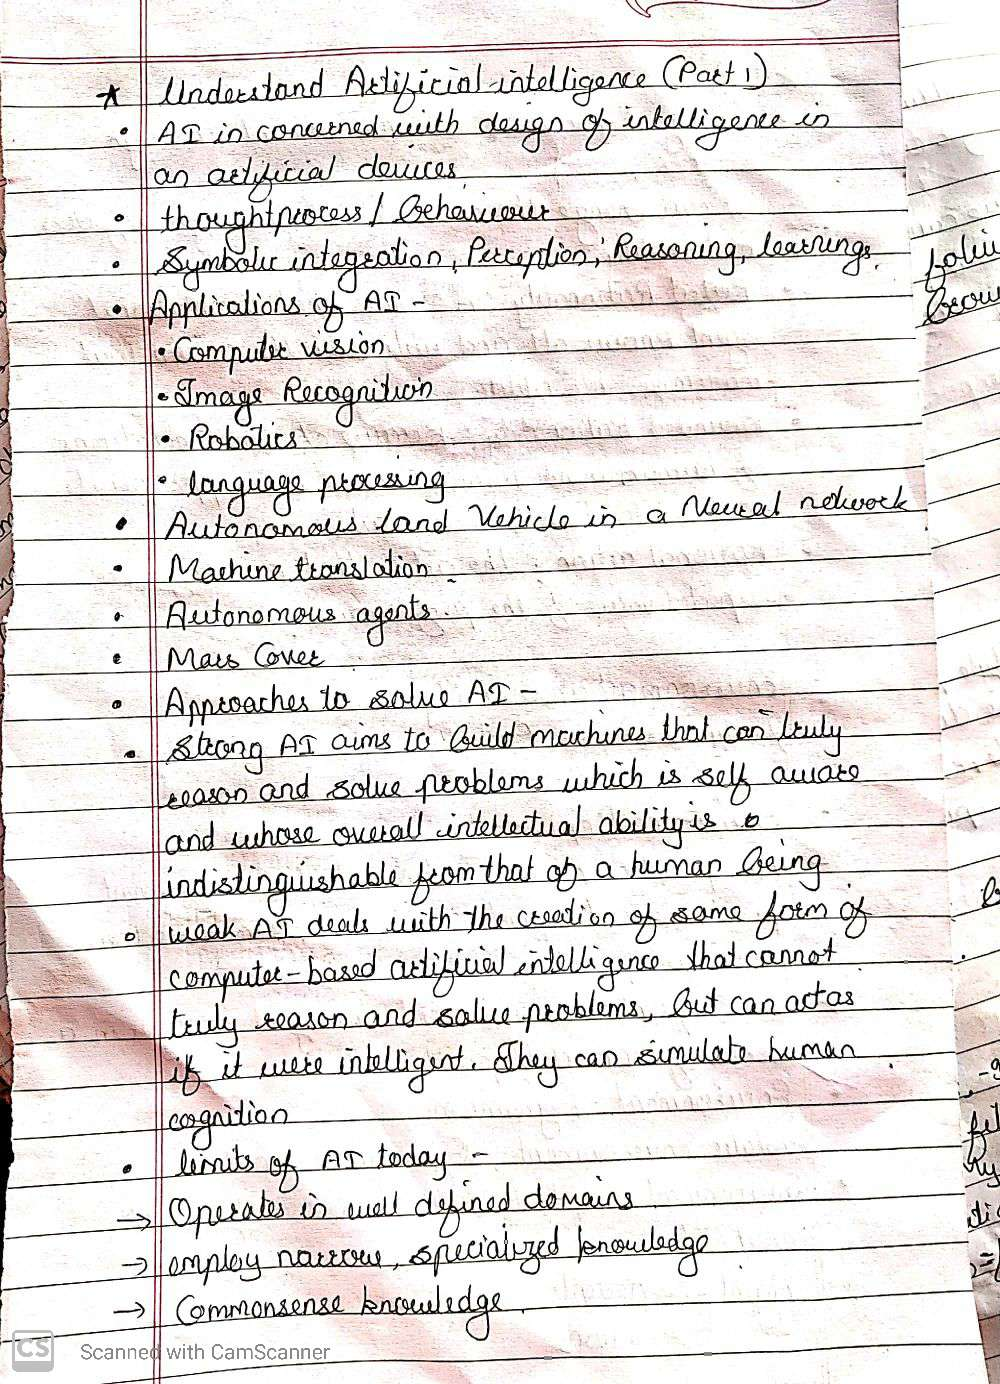 * Understand Artificial intelligence (Part 1)
• AI in concerned with design of intelligence in
an artificial devices
• thoughtprocess / behaviour
• Symbolic integration, Perception, Reasoning, learnings.
• Applications of AI -
• Computer vision
• Image Recognition
• Robotics
• language processing
• Autonomous land Vehicle in a Neural network
• Machine translation
• Autonomous agents.
• Mars Cover
• Approaches to solve AI -
• Strong AI aims to build machines that can truly
reason and solve problems which is self aware
and whose overall intellectual ability is
indistinguishable from that of a human being
• weak AI deals with the creation of some form of
computer-based artificial intelligence that cannot
truly reason and solve problems, but can act as
if it were intelligent. They can simulate human
cognition
• limits of AI today -
→ Operates in well defined domains
→ employ narrow, specialized knowledge
→ Commonsense knowledge.
CS Scanned with CamScanner